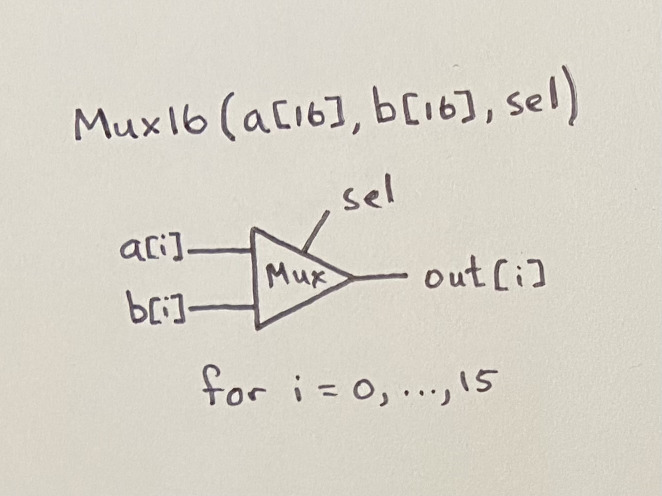 Mux16(a[16], b[16], sel)
sel
a[i]
Mux
out[i]
b[i]
for i = 0, ..., 15